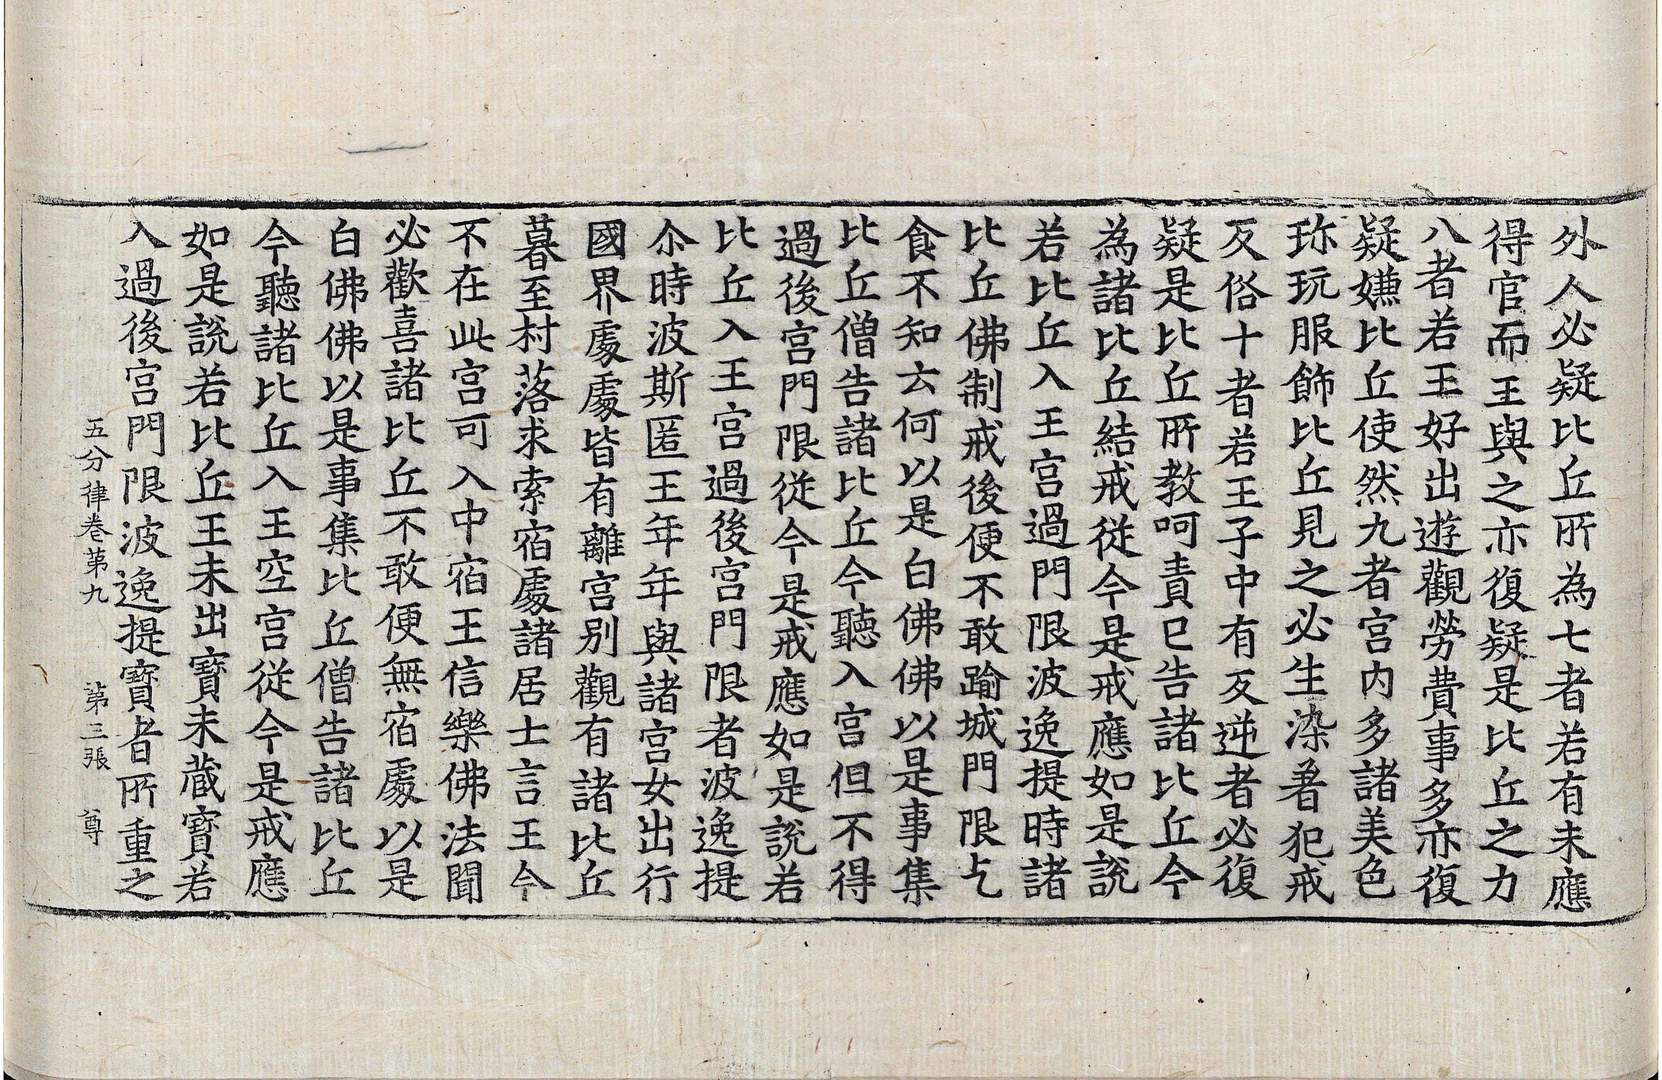 外人必疑比丘所為七者若有未應
得官而王與之亦復疑是比丘之力
八者若王好出遊觀勞費事多亦復
疑嫌比丘使然九者宮内多諸美色
珎玩服飾比丘見之必生染著犯戒
反俗十者若王子中有反逆者必復
疑是比丘所教呵責已告諸比丘今
為諸比丘結戒從今是戒應如是說
若比丘入王宮過門限波逸提時諸
比丘佛制戒後便不敢踰城門限乞
食不知云何以是白佛佛以是事集
比丘僧告諸比丘今聽入宮但不得
過後宮門限從今是戒應如是說若
比丘入王宮過後宮門限者波逸提
尒時波斯匿王年年與諸宮女出行
國界處處皆有離宮别觀有諸比丘
暮至村落求索宿處諸居士言王今
不在此宮可入中宿王信樂佛法聞
必歡喜諸比丘不敢便無宿處以是
白佛佛以是事集比丘僧告諸比丘
今聽諸比丘入王空宮從今是戒應
如是說若比丘王未出寶未蔵寶若
入過後宮門限波逸提寶者所重之
五分律卷第九 第三張 尊